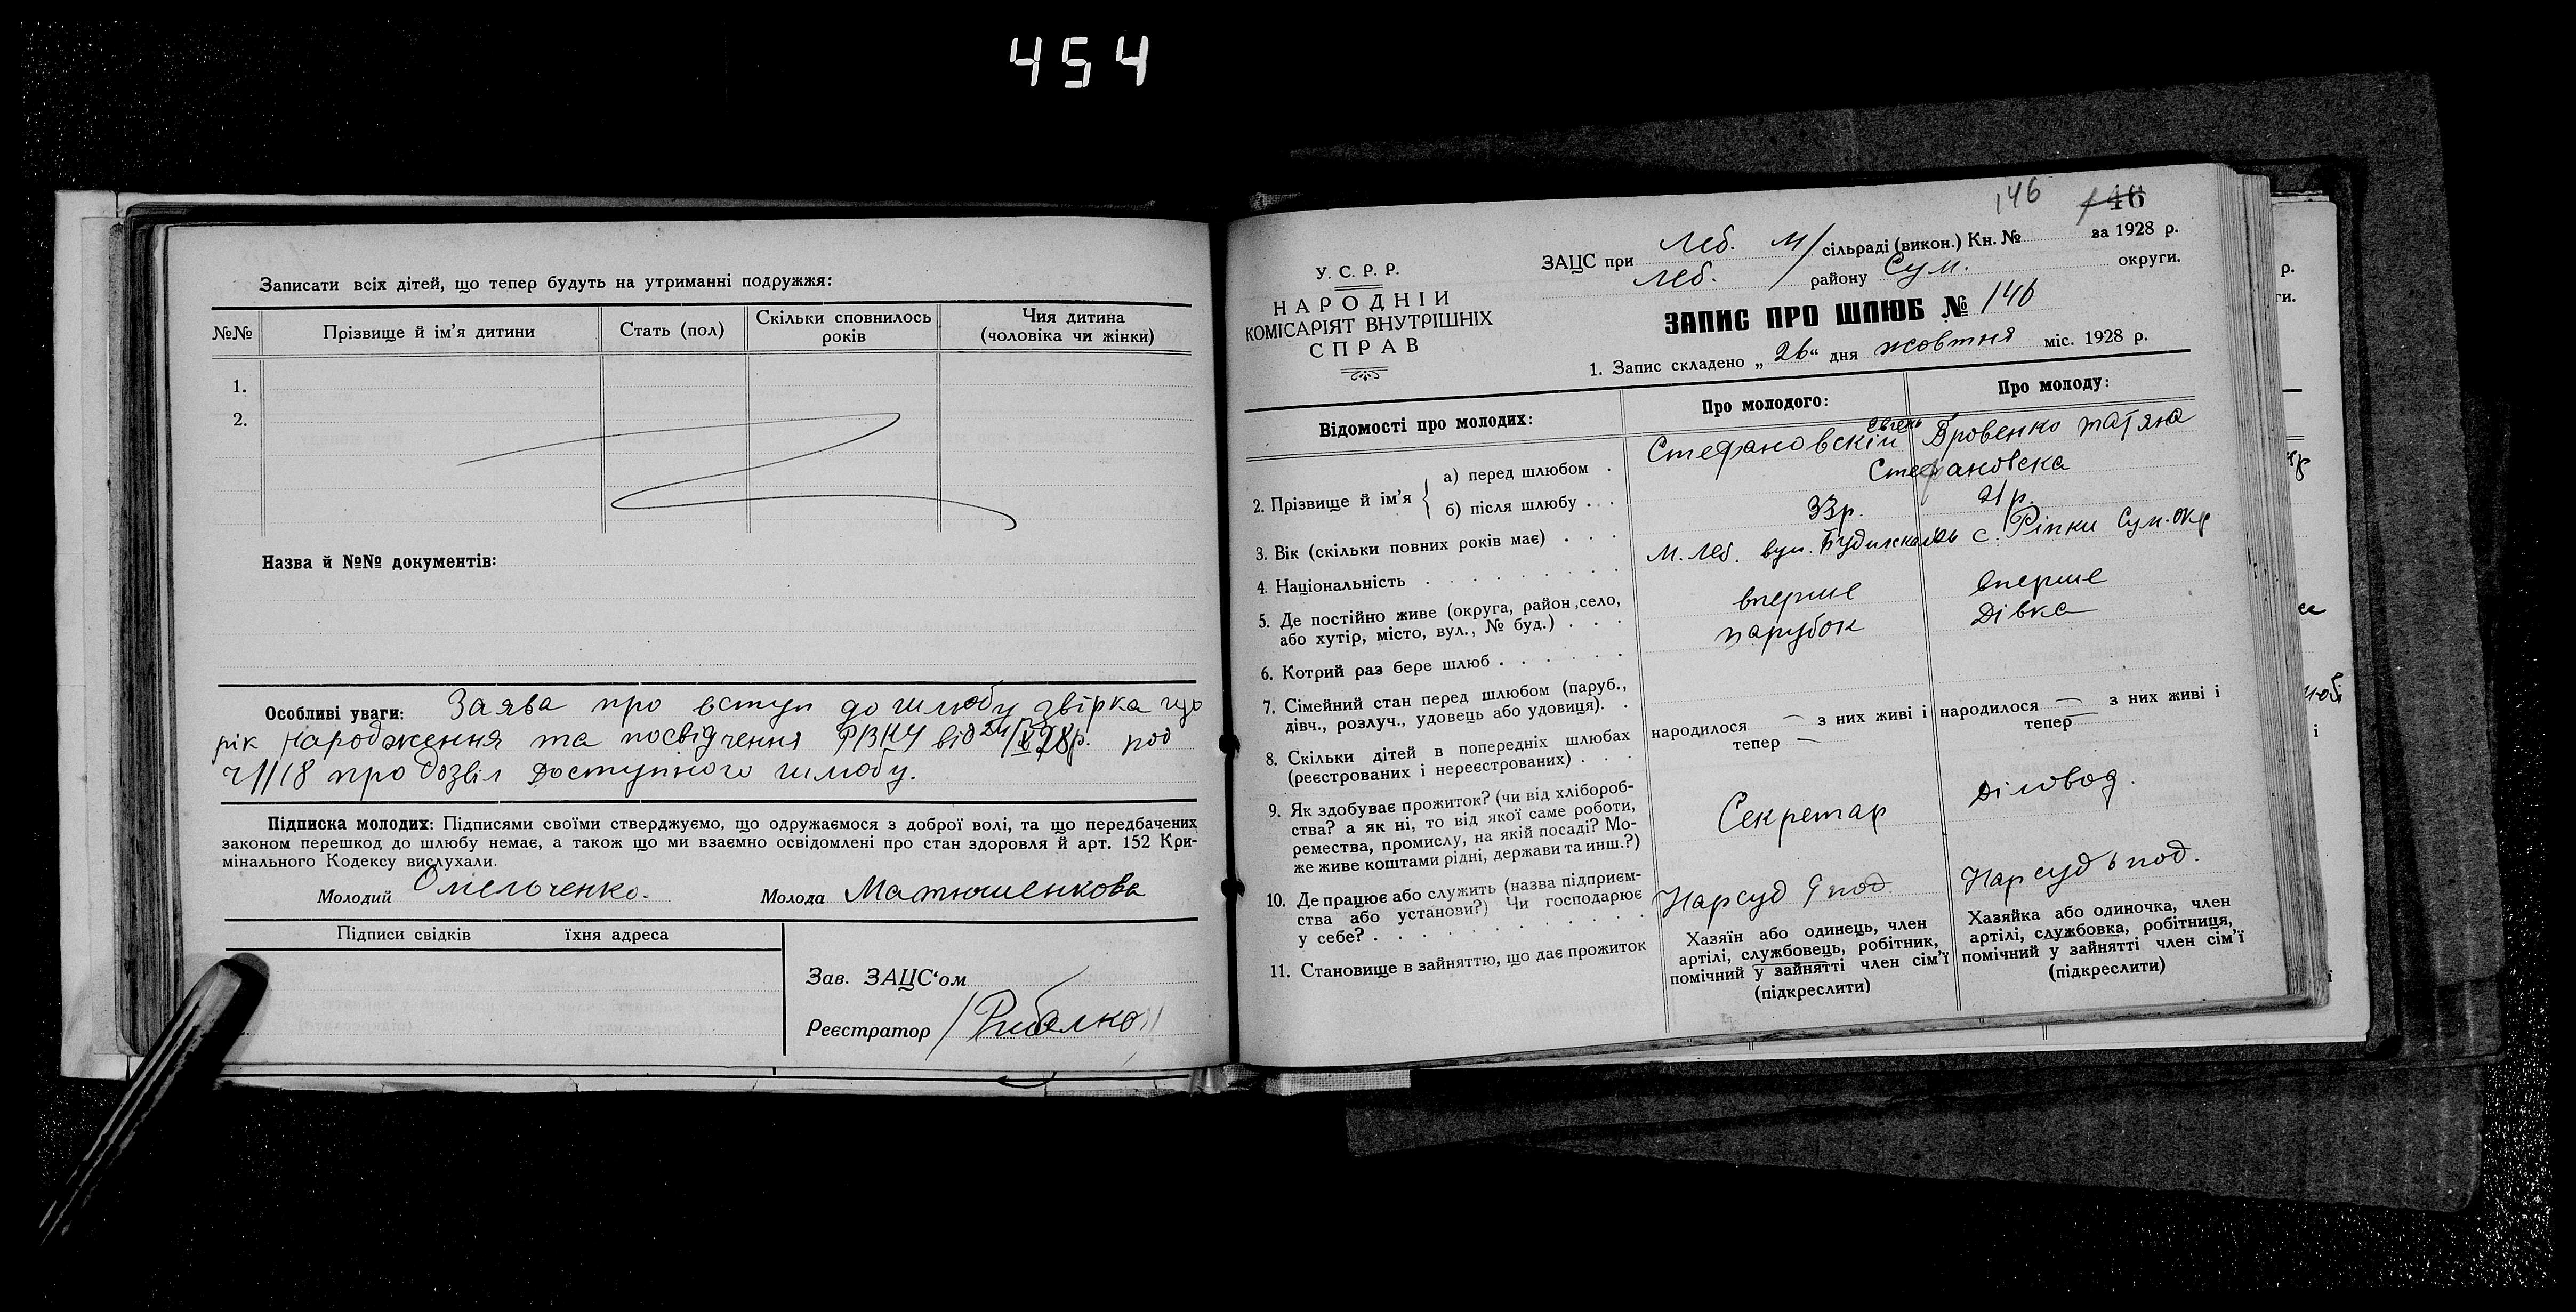 454
Записати всіх дітей, що тепер будуть на утриманні подружжя:
№№ Прізвище й ім'я дитини Стать (пол) Скільки сповнилось років Чия дитина (чоловіка чи жінки)
1.
2.
Назва й №№ документів:
Особливі уваги: Заява про вступ до шлюбу звірка що
рік народження та посвідчення РВКУ від 24/X 28р. под
ч 1118 про дозвіл доступного шлюбу.
Підписка молодих: Підписями своїми стверджуємо, що одружаємося з доброї волі, та що передбачених
законом перешкод до шлюбу немає, а також що ми взаємно освідомлені про стан здоровля й арт. 152 Кри-
мінального Кодексу вислухали.
Молодий Омельченко. Молода Матюшенкова
Підписи свідків їхня адреса
Зав. ЗАЦС'ом
Реєстратор /Рибалко/
146 146
У. С. Р. Р.
НАРОДНІЙ
КОМІСАРІЯТ ВНУТРІШНІХ
СПРАВ
ЗАЦС при Леб. м/ сільраді (викон.) Кн. № за 1928 р.
Леб. району Сум. округи.
ЗАПИС ПРО ШЛЮБ № 146
1. Запис складено „26“ дня жовтня міс. 1928 р.
Відомості про молодих: Про молодого: Про молоду:
2. Прізвище й ім'я
а) перед шлюбом . Стефановскій Євген Бровенко Татяна
б) після шлюбу . . . Стефановска
3. Вік (скільки повних років має) . . . 33р. 21р.
4. Національність
5. Де постійно живе (округа, район, село,
або хутір, місто, вул., № буд.) . . . м. Леб. вул. с. Ріпки Сум. окр
6. Котрий раз бере шлюб . . . . . . вперше вперше
7. Сімейний стан перед шлюбом (паруб.,
дівч., розлуч., удовець або удовиця). . парубок дівка
8. Скільки дітей в попередніх шлюбах
(реєстрованих і нереєстрованих) . . .
народилося — з них живі і
тепер —
народилося — з них живі і
тепер —
9. Як здобуває прожиток? (чи від хлібороб-
ства? а як ні, то від якої саме роботи,
ремества, промислу, на якій посаді? Мо-
же живе коштами рідні, держави та инш.?)
Секретар
Діловод.
10. Де працює або служить (назва підприєм-
ства або установи?) Чи господарює
у себе? . . . . . . . . . . . .
Нарсуд
Нарсуд
11. Становище в зайняттю, що дає прожиток
Хазяїн або одинець, член
артілі, службовець, робітник,
помічний у зайнятті член сім'ї
(підкреслити)
Хазяйка або одиночка, член
артілі, службовка, робітниця,
помічний у зайнятті член сім'ї
(підкреслити)